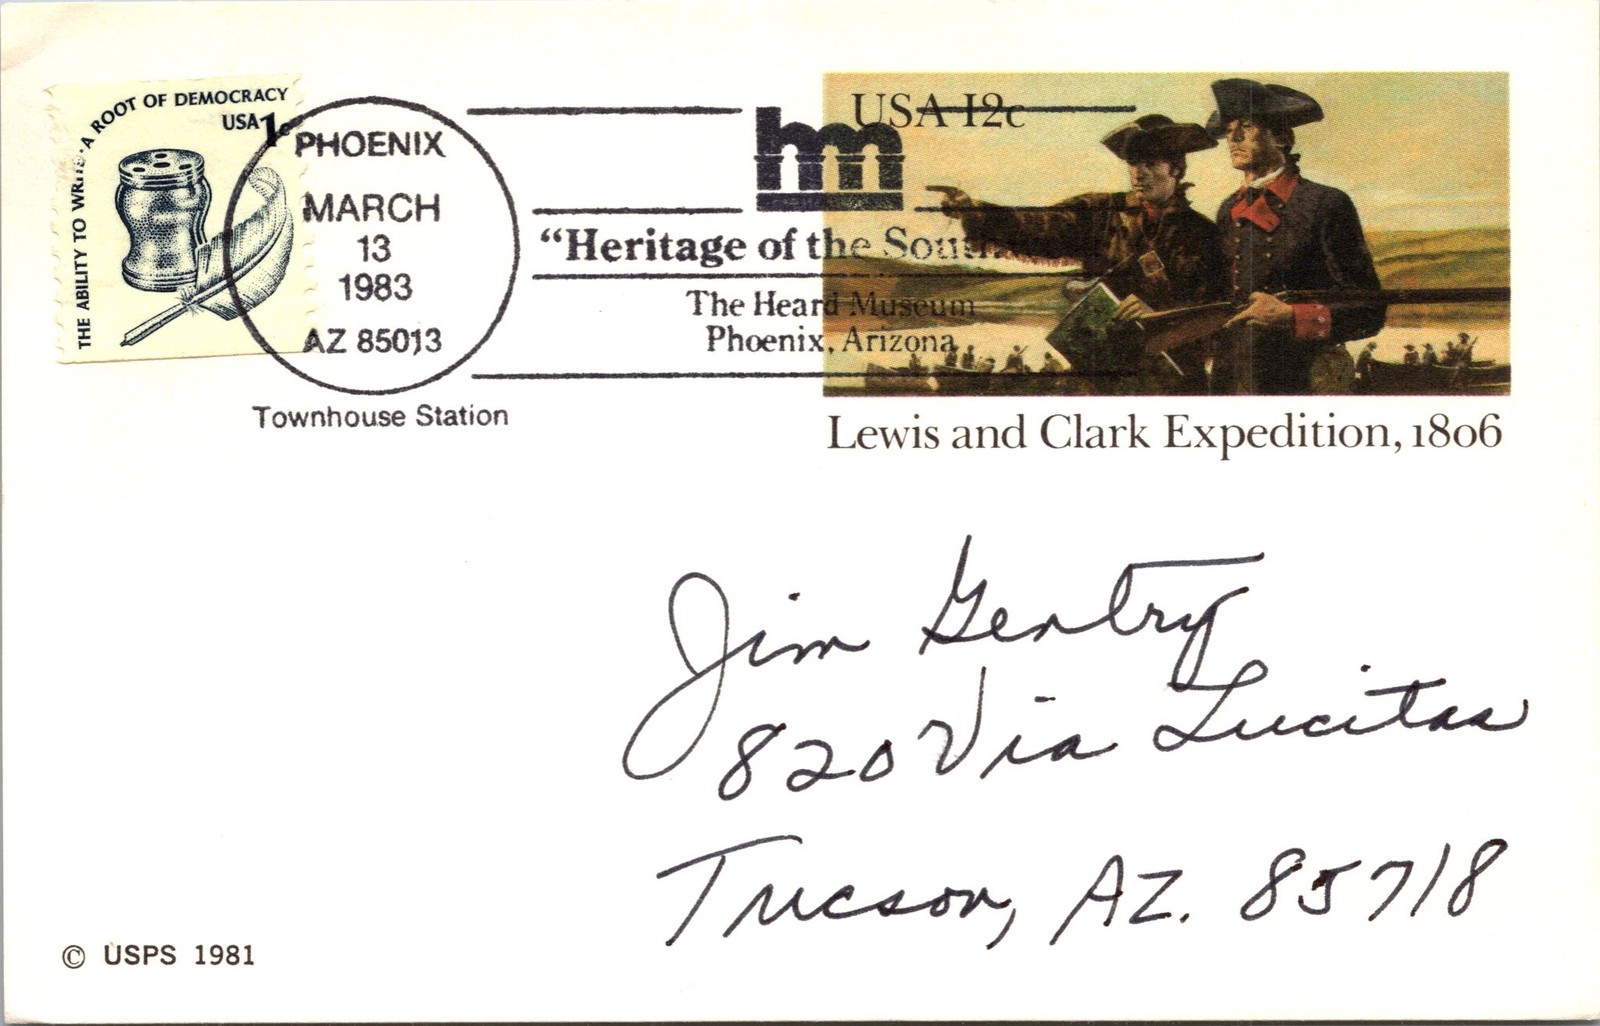 THE ABILITY TO WRITE · A ROOT OF DEMOCRACY
USA 1c
PHOENIX
MARCH
13
1983
AZ 85013
Townhouse Station
hm
"Heritage of the
The Heard Museum
Phoenix, Arizona
USA 12c
Lewis and Clark Expedition, 1806
Jim Gentry
820 Via Lucitas
Tucson, AZ. 85718
© USPS 1981